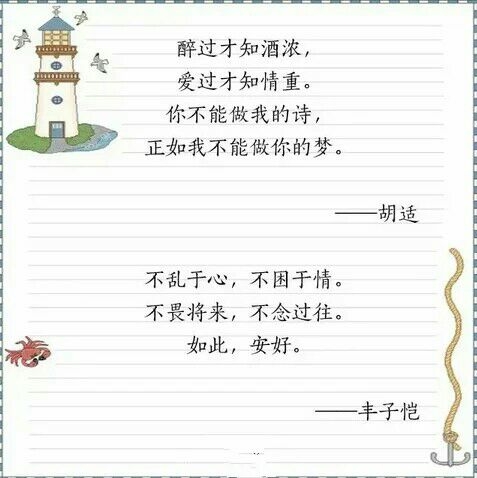 醉过才知酒浓，
爱过才知情重。
你不能做我的诗，
正如我不能做你的梦。
——胡适
不乱于心，不困于情。
不畏将来，不念过往。
如此，安好。
——丰子恺